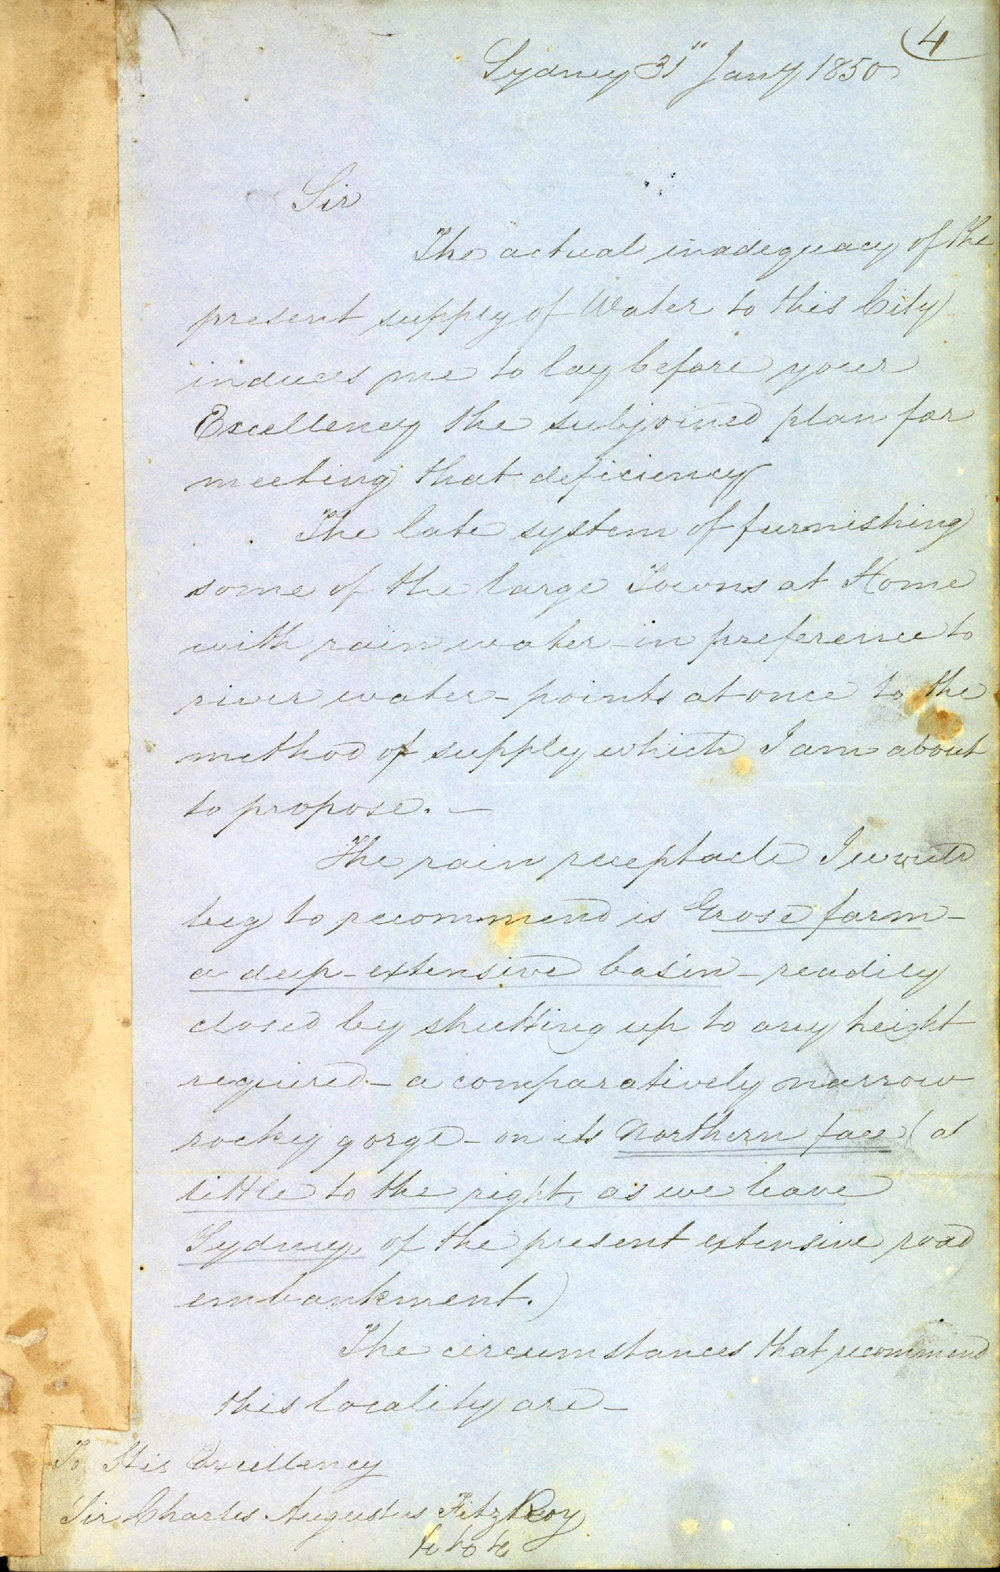 4
Sydney 31st Jany 1850
Sir
The actual inadequacy of the
present supply of Water to this City
induces me to lay before your
Excellency the subjoined plan for
meeting that deficiency
The late system of furnishing
some of the large Towns at Home
with rain water - in preference to
river water - points at once to the
method of supply which I am about
to propose. —
The rain receptacle I would
beg to recommend is Grose farm -
a deep - extensive basin - readily
closed by shutting up to any height
required - a comparatively narrow
rocky gorge - on its Northern face (a
little to the right, as we leave
Sydney, of the present extensive road
embankment.)
The circumstances that recommend
this locality are -
To His Excellency
Sir Charles Augustus FitzRoy